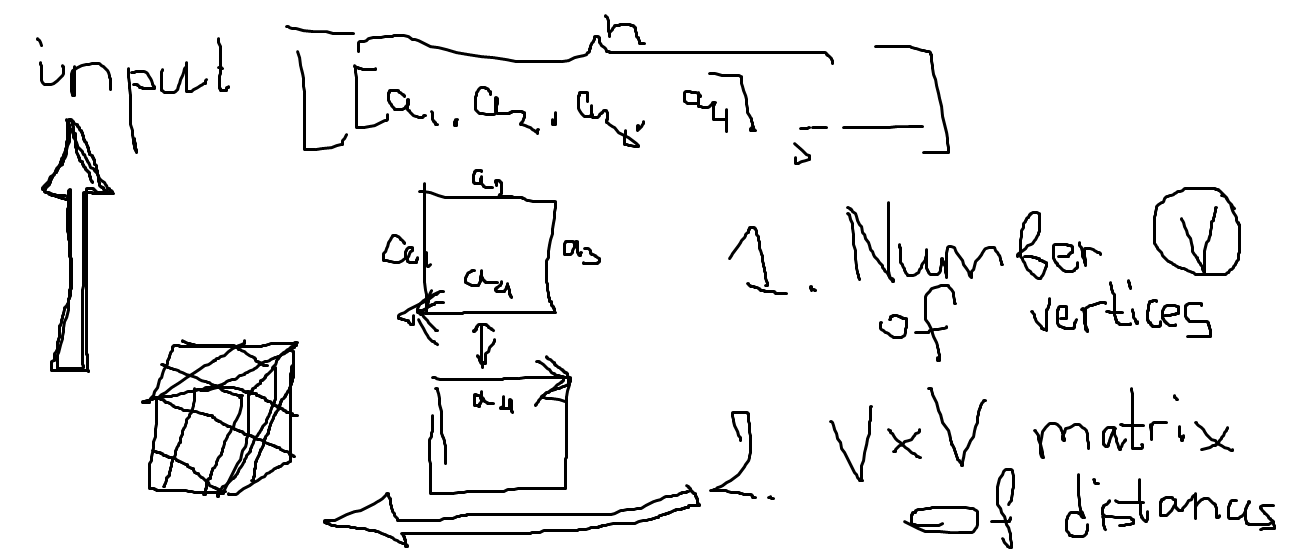 input
n
[[a₁, a₂, a₃, a₄], _ __]
a₂
a₁
a₃
a₄
a₄
1. Number V
of vertices
2. V×V matrix
of distances